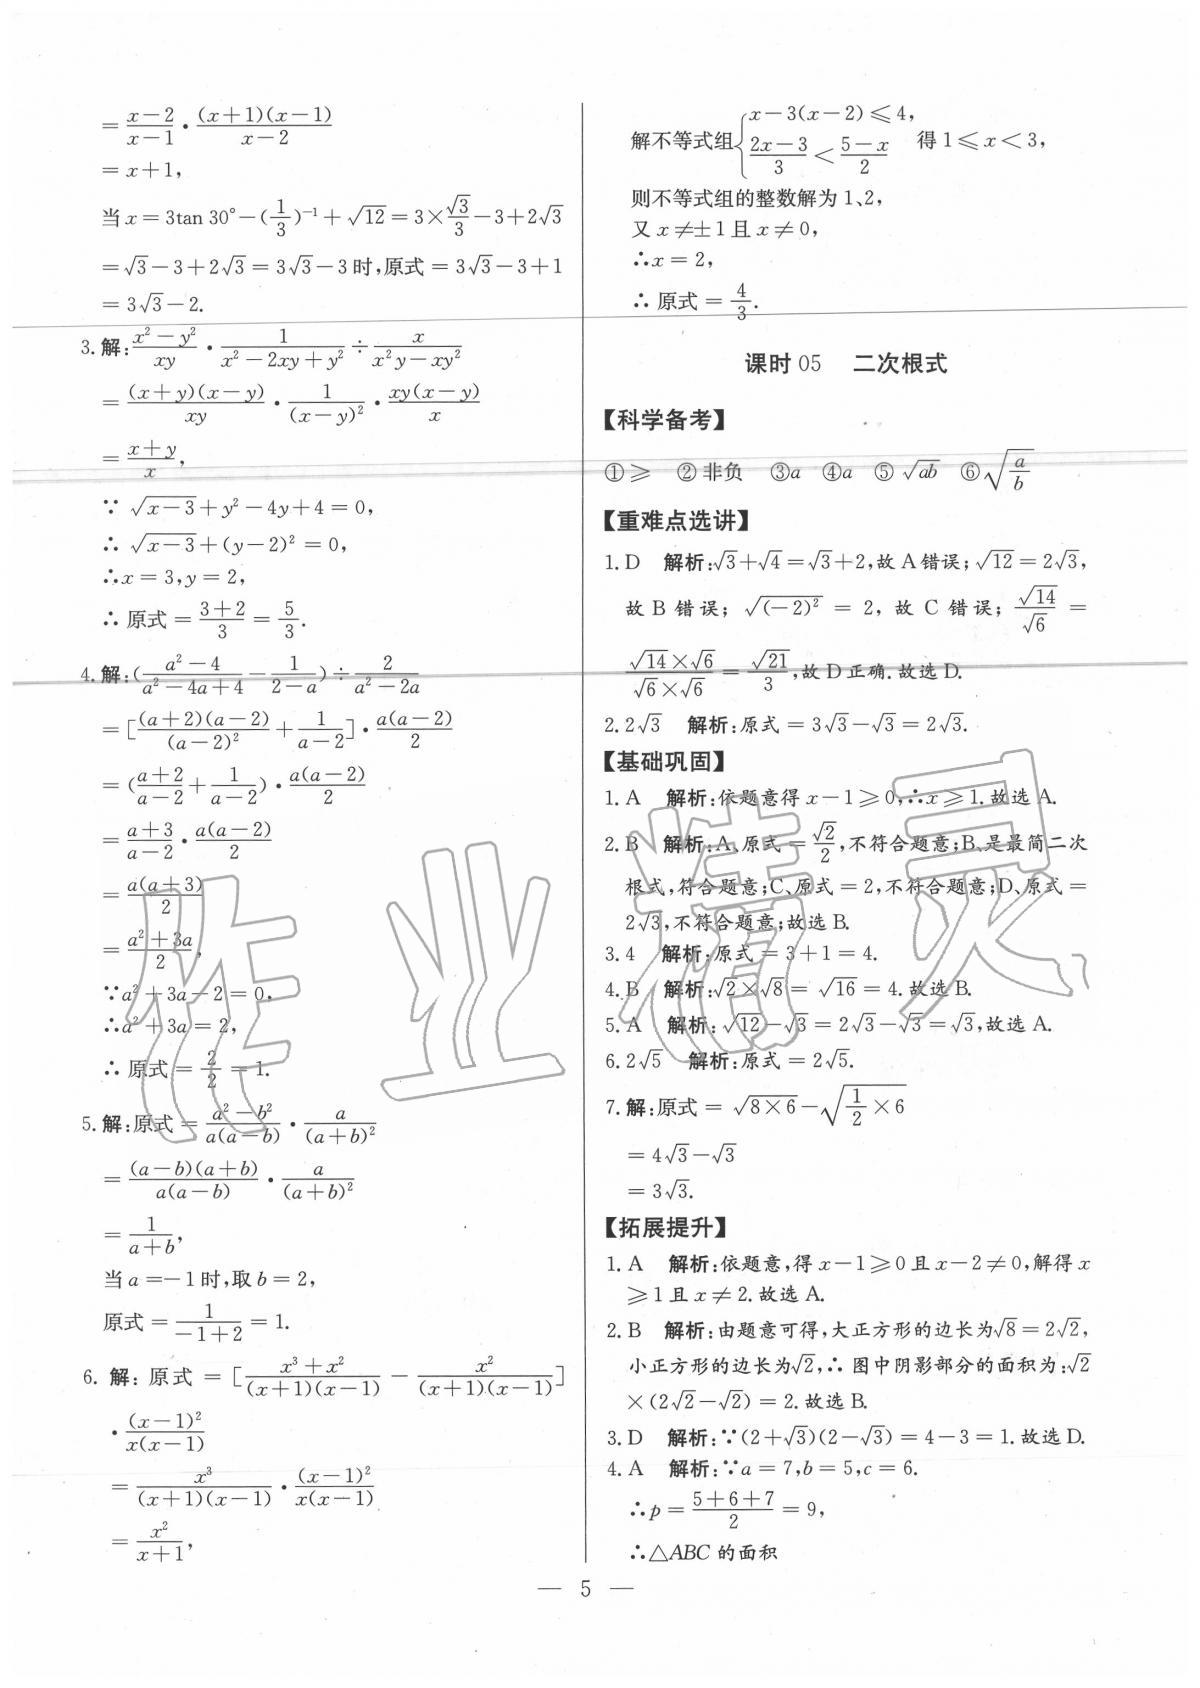 = \frac{x-2}{x-1} · \frac{(x+1)(x-1)}{x-2}
= x+1,
当 x = 3tan 30° - (\frac{1}{3})^{-1} + √12 = 3×\frac{√3}{3} - 3 + 2√3
= √3 - 3 + 2√3 = 3√3 - 3 时,原式 = 3√3 - 3 + 1
= 3√3 - 2.
3. 解: \frac{x²-y²}{xy} · \frac{1}{x²-2xy+y²} ÷ \frac{x}{x²y-xy²}
= \frac{(x+y)(x-y)}{xy} · \frac{1}{(x-y)²} · \frac{xy(x-y)}{x}
= \frac{x+y}{x},
∵ √(x-3) + y² - 4y + 4 = 0,
∴ √(x-3) + (y-2)² = 0,
∴x = 3,y = 2,
∴ 原式 = \frac{3+2}{3} = \frac{5}{3}.
4. 解:(\frac{a²-4}{a²-4a+4} - \frac{1}{2-a}) ÷ \frac{2}{a²-2a}
= [\frac{(a+2)(a-2)}{(a-2)²} + \frac{1}{a-2}] · \frac{a(a-2)}{2}
= (\frac{a+2}{a-2} + \frac{1}{a-2}) · \frac{a(a-2)}{2}
= \frac{a+3}{a-2} · \frac{a(a-2)}{2}
= \frac{a(a+3)}{2}
= \frac{a²+3a}{2},
∵a² + 3a - 2 = 0,
∴a² + 3a = 2,
∴ 原式 = \frac{2}{2} = 1.
5. 解:原式 = \frac{a²-b²}{a(a-b)} · \frac{a}{(a+b)²}
= \frac{(a-b)(a+b)}{a(a-b)} · \frac{a}{(a+b)²}
= \frac{1}{a+b},
当 a = -1 时,取 b = 2,
原式 = \frac{1}{-1+2} = 1.
6. 解: 原式 = [\frac{x³+x²}{(x+1)(x-1)} - \frac{x²}{(x+1)(x-1)}]
· \frac{(x-1)²}{x(x-1)}
= \frac{x³}{(x+1)(x-1)} · \frac{(x-1)²}{x(x-1)}
= \frac{x²}{x+1},
解不等式组 { x-3(x-2) ≤ 4, \frac{2x-3}{3} < \frac{5-x}{2} 得 1 ≤ x < 3,
则不等式组的整数解为 1、2,
又 x ≠ ±1 且 x ≠ 0,
∴x = 2,
∴ 原式 = \frac{4}{3}.
课时 05 二次根式
【科学备考】
① ≥ ② 非负 ③a ④a ⑤ √ab ⑥ √\frac{a}{b}
【重难点选讲】
1. D 解析:√3 + √4 = √3 + 2,故 A 错误; √12 = 2√3,
故 B 错误; √(-2)² = 2, 故 C 错误; \frac{√14}{√6} =
\frac{√14×√6}{√6×√6} = \frac{√21}{3},故 D 正确. 故选 D.
2. 2√3 解析:原式 = 3√3 - √3 = 2√3.
【基础巩固】
1. A 解析:依题意得 x-1 ≥ 0,∴x ≥ 1. 故选 A.
2. B 解析:A、原式 = \frac{√2}{2},不符合题意;B、是最简二次
根式,符合题意;C、原式 = 2,不符合题意;D、原式 =
2√3,不符合题意;故选 B.
3. 4 解析:原式 = 3 + 1 = 4.
4. B 解析:√2 × √8 = √16 = 4. 故选 B.
5. A 解析:√12 - √3 = 2√3 - √3 = √3,故选 A.
6. 2√5 解析:原式 = 2√5.
7. 解:原式 = √(8×6) - √(\frac{1}{2}×6)
= 4√3 - √3
= 3√3.
【拓展提升】
1. A 解析:依题意,得 x-1 ≥ 0 且 x-2 ≠ 0,解得 x
≥ 1 且 x ≠ 2. 故选 A.
2. B 解析:由题意可得,大正方形的边长为√8 = 2√2,
小正方形的边长为√2,∴ 图中阴影部分的面积为:√2
×(2√2-√2) = 2. 故选 B.
3. D 解析:∵(2+√3)(2-√3) = 4-3 = 1. 故选 D.
4. A 解析:∵a = 7,b = 5,c = 6.
∴p = \frac{5+6+7}{2} = 9,
∴△ABC 的面积
— 5 —
作业精灵